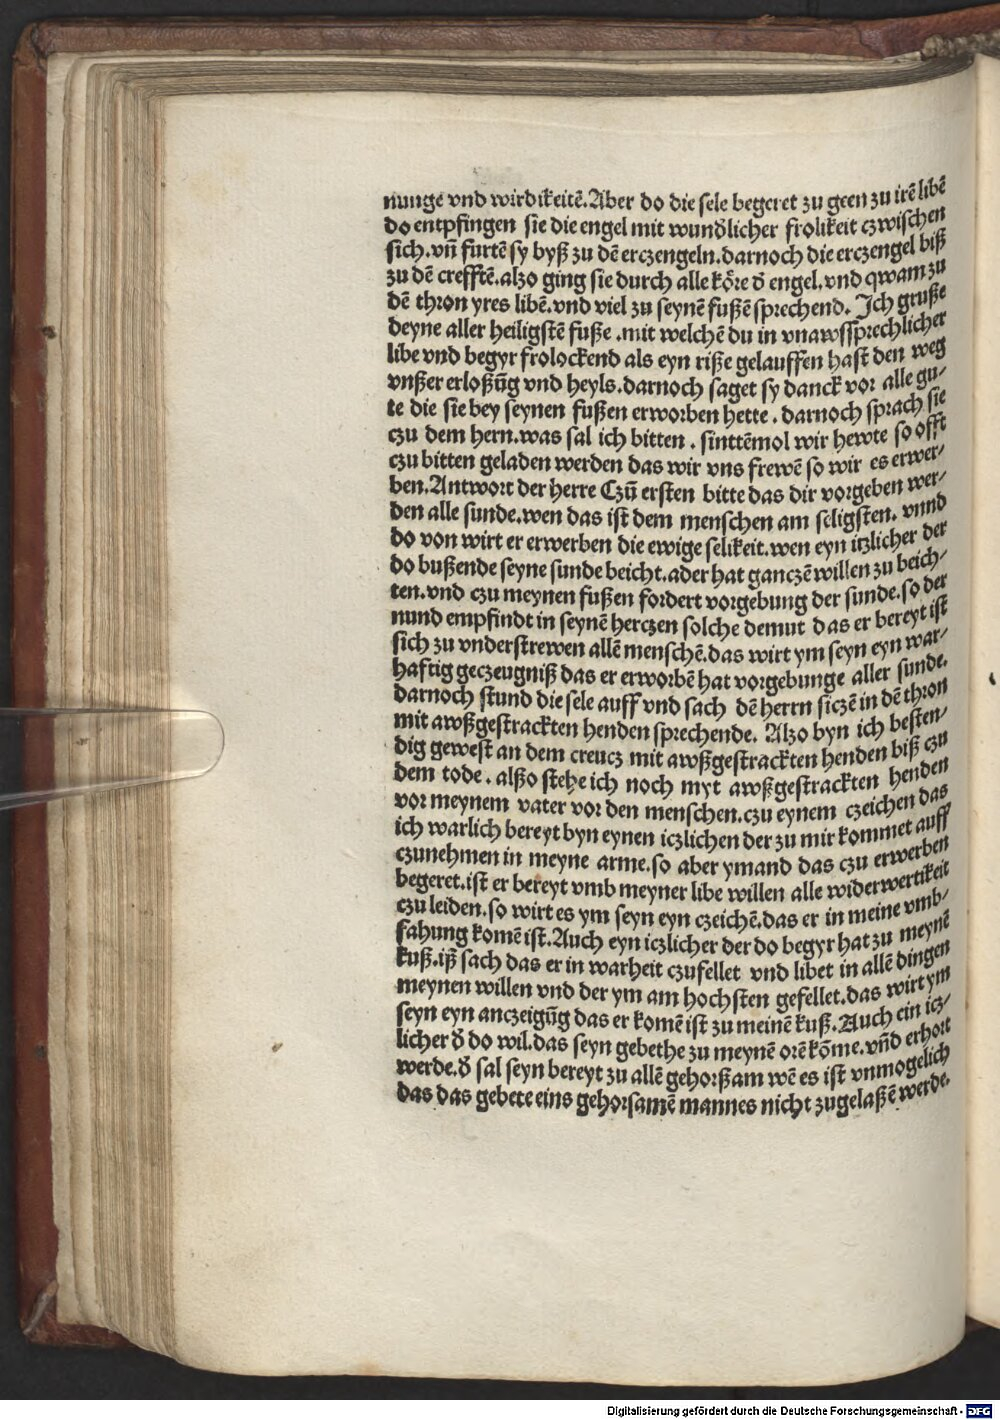 nunge vnd wirdikeitē. Aber do die sele begeret zu geen zu irē libē
do entpfingen sie die engel mit wund̾licher frolikeit czwischen
sich. vn̄ furtē sy byß zu dē erczengeln. darnoch die erczengel biß
zu dē crefftē. alzo ging sie durch alle kȯre d̾ engel. vnd qwam zu
dē thron yres libē. vnd viel zu seynē fußē sprechend. Ich gruße
deyne aller heiligstē fuße . mit welchē du in vnawssprechlicher
libe vnd begyr frolockend als eyn riße gelauffen hast den weg
vnßer erloßūg vnd heyls. darnoch saget sy danck vor alle gu-
te die sie bey seynen fußen erworben hette . darnoch sprach sie
czu dem hern. was sal ich bitten . sinttēmol wir hewte so offt
czu bitten geladen werden das wir vns frewē so wir es erwer-
ben. Antwort der herre Czū ersten bitte das dir vorgeben wer-
den alle sunde. wen das ist dem menschen am seligsten. vnnd
do von wirt er erwerben die ewige selikeit. wen eyn itzlicher der
do bußende seyne sunde beicht. ader hat ganczē willen zu beich-
ten. vnd czu meynen fußen fordert vorgebung der sunde. so der
nund empfindt in seynē herczen solche demut das er bereyt ist
sich zu vnderstrewen allē menschē. das wirt ym seyn eyn war-
haftig geczeugniß das er erworbē hat vorgebunge aller sunde.
darnoch stund die sele auff vnd sach dē herrn siczē in dē thron
mit awßgestrackten henden sprechende. Alzo byn ich besten-
dig gewest an dem creucz mit awßgestrackten henden biß czu
dem tode . alßo stehe ich noch myt awßgestrackten henden
vor meynem vater vor den menschen. czu eynem czeichen das
ich warlich bereyt byn eynen iczlichen der zu mir kommet auff
czunehmen in meyne arme. so aber ymand das czu erwerben
begeret. ist er bereyt vmb meyner libe willen alle widerwertikeit
czu leiden. so wirt es ym seyn eyn czeichē. das er in meine vmb-
fahung komē ist. Auch eyn iczlicher der do begyr hat zu meynē
kuß. iß sach das er in warheit czufellet vnd libet in allē dingen
meynen willen vnd der ym am hochsten gefellet. das wirt ym
seyn eyn anczeigūg das er komē ist zu meinē kuß. Auch ein icz-
licher d̾ do wil. das seyn gebethe zu meynē orē kōme. vn̄d erhort
werde. d̾ sal seyn bereyt zu allē gehorßam wē es ist vnmogelich
das das gebete eins gehorsamē mannes nicht zugelaßē werde.
Digitalisierung gefördert durch die Deutsche Forschungsgemeinschaft - DFG